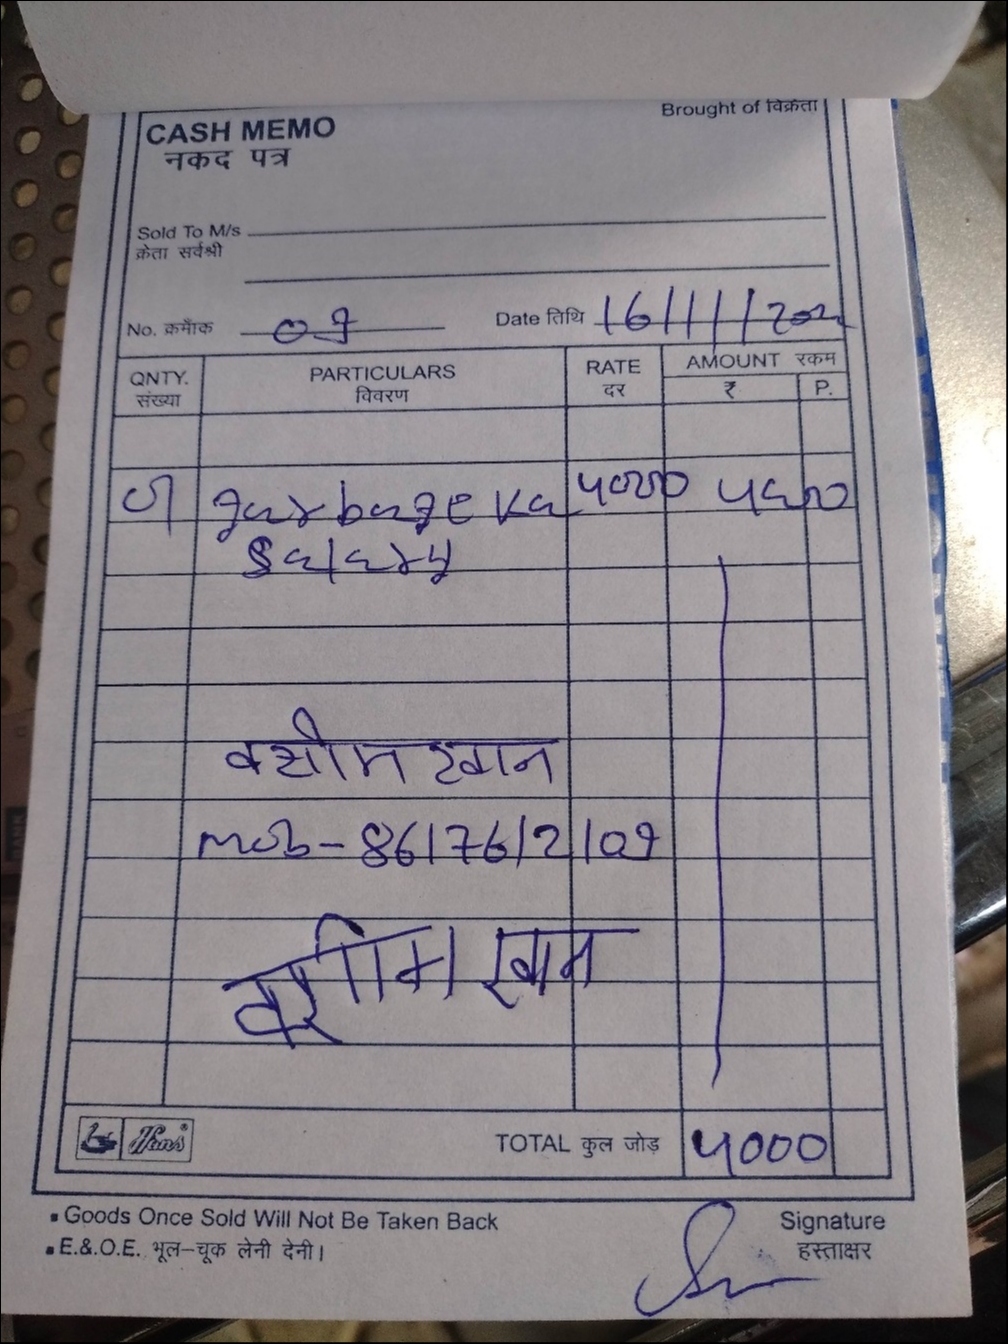 Brought of विक्रेता
CASH MEMO
नकद पत्र
Sold To M/s
क्रेता सर्वश्री
No. क्रमाँक 09 Date तिथि 16/11/202
QNTY. PARTICULARS RATE AMOUNT रकम
संख्या विवरण दर ₹ P.
01 garbage ka 4000 4000
Salary
वसीम खान
mob- 8617612109
वसीम खान
Hans®
TOTAL कुल जोड़ 4000
Goods Once Sold Will Not Be Taken Back Signature
E.&.O.E. भूल-चूक लेनी देनी। हस्ताक्षर